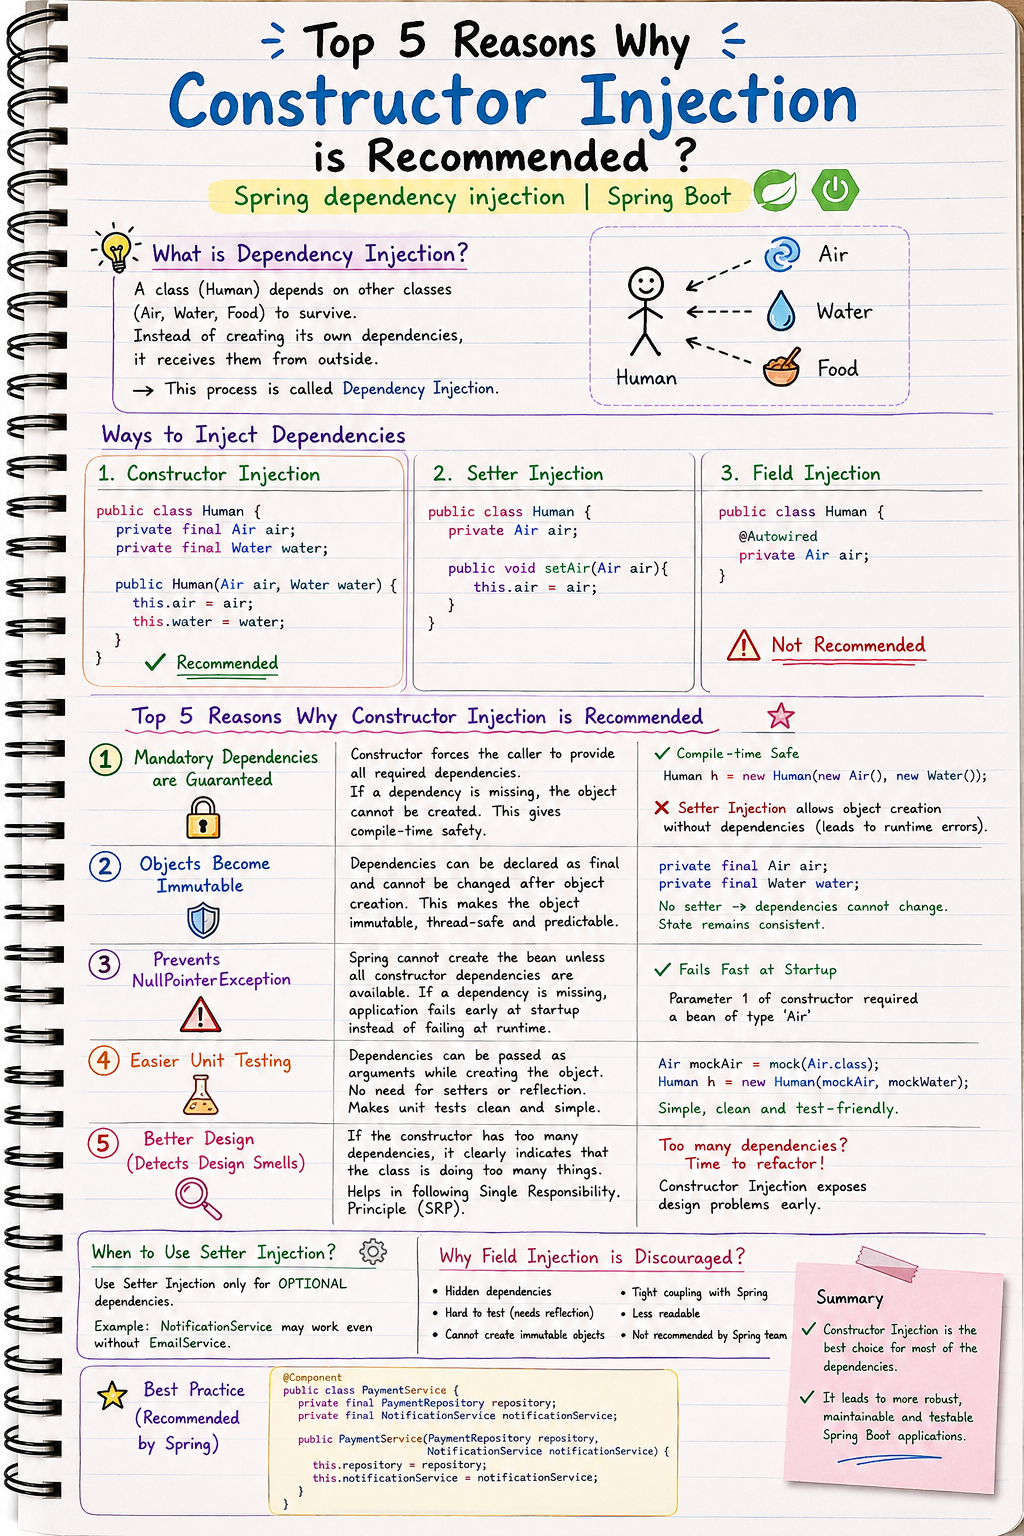 Top 5 Reasons Why
Constructor Injection
is Recommended ?
Spring dependency injection | Spring Boot
What is Dependency Injection?
A class (Human) depends on other classes
(Air, Water, Food) to survive.
Instead of creating its own dependencies,
it receives them from outside.
→ This process is called Dependency Injection.
Air
Water
Food
Human
Ways to Inject Dependencies
1. Constructor Injection
public class Human {
private final Air air;
private final Water water;
public Human(Air air, Water water) {
this.air = air;
this.water = water;
}
}
✓ Recommended
2. Setter Injection
public class Human {
private Air air;
public void setAir(Air air){
this.air = air;
}
}
3. Field Injection
public class Human {
@Autowired
private Air air;
}
Not Recommended
Top 5 Reasons Why Constructor Injection is Recommended
1 Mandatory Dependencies
are Guaranteed
Constructor forces the caller to provide
all required dependencies.
If a dependency is missing, the object
cannot be created. This gives
compile-time safety.
✓ Compile-time Safe
Human h = new Human(new Air(), new Water());
✗ Setter Injection allows object creation
without dependencies (leads to runtime errors).
2 Objects Become
Immutable
Dependencies can be declared as final
and cannot be changed after object
creation. This makes the object
immutable, thread-safe and predictable.
private final Air air;
private final Water water;
No setter → dependencies cannot change.
State remains consistent.
3 Prevents
NullPointerException
Spring cannot create the bean unless
all constructor dependencies are
available. If a dependency is missing,
application fails early at startup
instead of failing at runtime.
✓ Fails Fast at Startup
Parameter 1 of constructor required
a bean of type 'Air'
4 Easier Unit Testing
Dependencies can be passed as
arguments while creating the object.
No need for setters or reflection.
Makes unit tests clean and simple.
Air mockAir = mock(Air.class);
Human h = new Human(mockAir, mockWater);
Simple, clean and test-friendly.
5 Better Design
(Detects Design Smells)
If the constructor has too many
dependencies, it clearly indicates that
the class is doing too many things.
Helps in following Single Responsibility.
Principle (SRP).
Too many dependencies?
Time to refactor!
Constructor Injection exposes
design problems early.
When to Use Setter Injection?
Use Setter Injection only for OPTIONAL
dependencies.
Example: NotificationService may work even
without EmailService.
Why Field Injection is Discouraged?
• Hidden dependencies
• Hard to test (needs reflection)
• Cannot create immutable objects
• Tight coupling with Spring
• Less readable
• Not recommended by Spring team
Summary
✓ Constructor Injection is the
best choice for most of the
dependencies.
✓ It leads to more robust,
maintainable and testable
Spring Boot applications.
Best Practice
(Recommended
by Spring)
@Component
public class PaymentService {
private final PaymentRepository repository;
private final NotificationService notificationService;
public PaymentService(PaymentRepository repository,
NotificationService notificationService) {
this.repository = repository;
this.notificationService = notificationService;
}
}